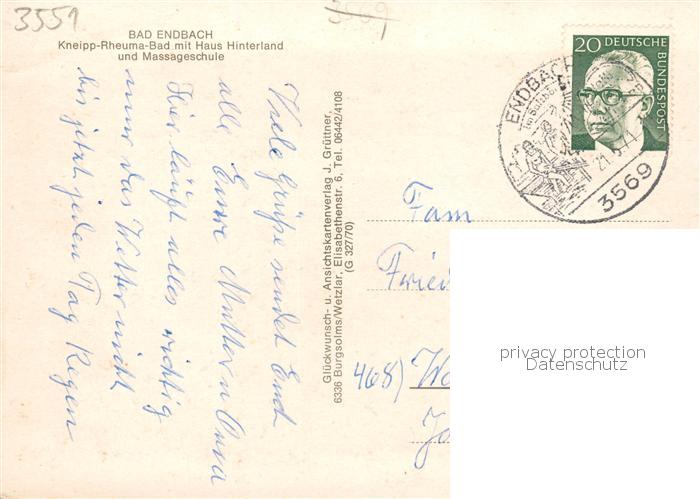 3551
BAD ENDBACH
Kneipp-Rheuma-Bad mit Haus Hinterland
und Massageschule
Viele Grüße sendet Euch
alle Eure Mutter u Oma
Hier läuft alles richtig
nur das Wetter nicht
bis jetzt jeden Tag Regen
Glückwunsch- u. Ansichtskartenverlag J. Grüttner,
6336 Burgsolms/Wetzlar, Elisabethenstr. 6, Tel. 06442/4108
(G 327/70)
20 DEUTSCHE
BUNDESPOST
ENDBACH
3569
Fam
Fried
468) Wa
privacy protection
Datenschutz